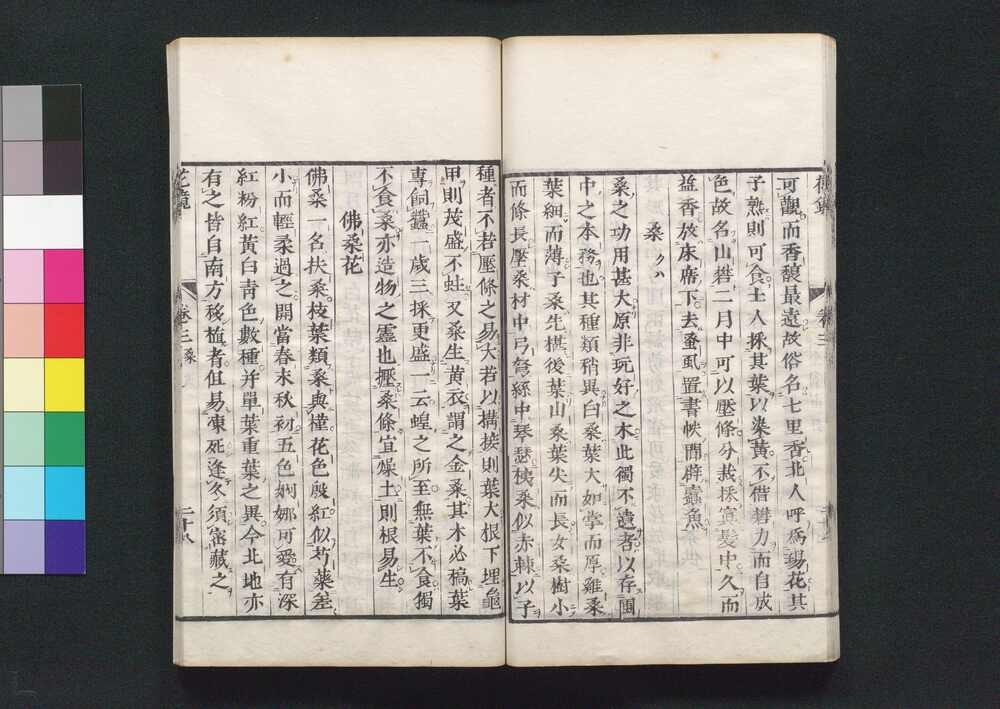 可觀而香馥最遠故俗名七里香北人呼為瑒花其
子熟則可食土人採其葉以染黃不借礬力而自成
色故名山礬二月中可以壓條分栽採置髮中久而
益香放床席下去蚤虱置書帙間辟蠹魚
桑 クハ
桑之功用甚大原非玩好之木此獨不遺者以存國
中之本務也其種類稍異白桑葉大如掌而厚雞桑
葉細而薄子桑先椹後葉山桑葉尖而長女桑樹小
而條長壓桑材中弓弩絲中琴瑟桋桑似赤棘以子
種者不若壓條之易大若以搆接則葉大根下埋龜
甲則茂盛不蛀又桑生黃衣謂之金桑其木必稿葉
專飼蠶一歲三採更盛一云蝗之所至無葉不食獨
不食桑亦造物之靈也壓桑條宜燥土則根易生
佛桑花
佛桑一名扶桑枝葉類桑與槿花色殷紅似芍藥差
小而輕柔過之開當春末秋初五色婀娜可愛有深
紅粉紅黃白青色數種并單葉重葉之異今北地亦
有之皆自南方移植者但易凍死逢冬須密藏之
花鏡
卷三 桑
二十八